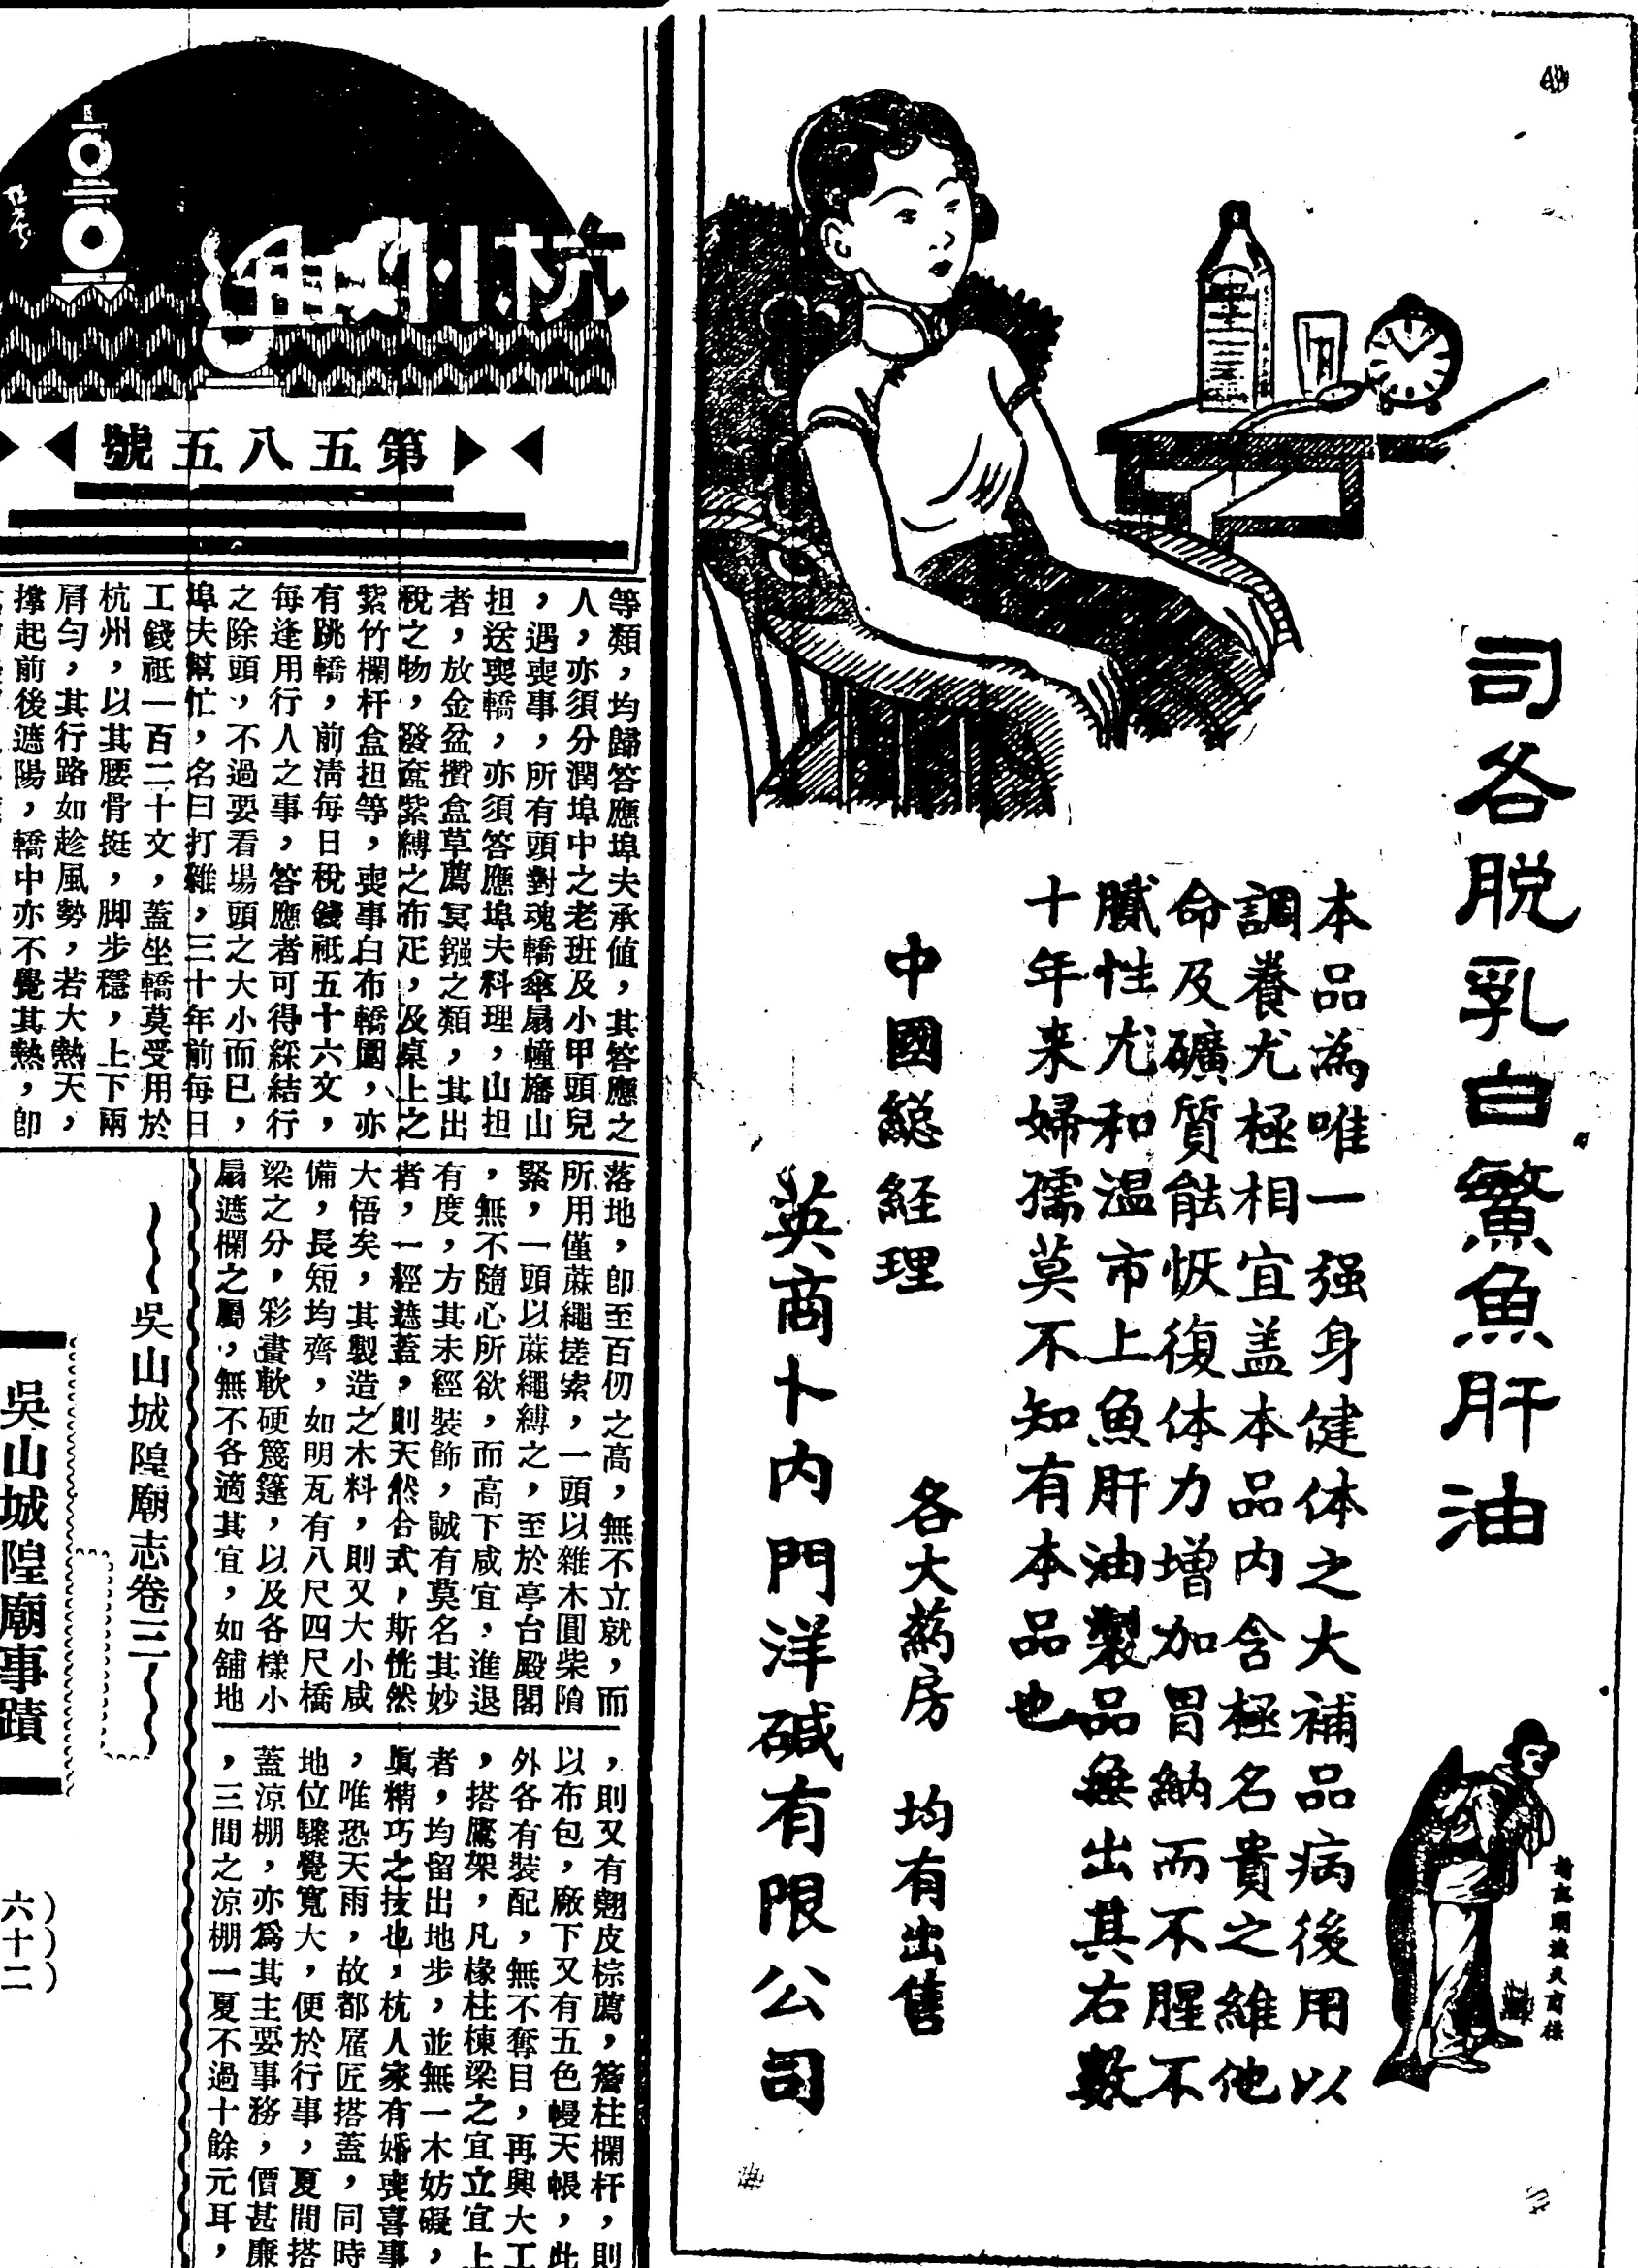 司各脱乳白鰵魚肝油
本品為唯一强身健体之大補品病後用以
調養尤極相宜盖本品内含極名貴之維他
命及礦质能恢復体力增加胃納而不腥不
膩性尤和温市上魚肝油製品無出其右數
十年来婦孺莫不知有本品也
中國総経理
各大葯房 均有出售
英商卜内門洋碱有限公司
第五八五號
等類，均歸答應埠夫承值，其答應之
人，亦須分潤埠中之老班及小甲頭兒
，遇喪事，所有頭對魂轎傘扇幢旛山
担送喪轎，亦須答應埠夫料理，山担
者，放金盆攢盒草薦冥鏹之類，其出
稅之物，發奩紮縛之布疋，及桌上之
紫竹欄杆盒担等，喪事白布轎圍，亦
有跳轎，前淸每日稅錢祗五十六文，
每逢用行人之事，答應者可得綵結行
之除頭，不過要看場頭之大小而已，
埠夫幫忙，名曰打雜，三十年前每日
工錢祗一百二十文，蓋坐轎莫受用於
杭州，以其腰骨挺，脚步穩，上下兩
肩匀，其行路如趁風勢，若大熱天，
撑起前後遮陽，轎中亦不覺其熱，卽
落地，卽至百仞之高，無不立就，而
所用僅蔴繩搓索，一頭以雜木圓柴隂
緊，一頭以蔴繩縛之，至於亭台殿閣
，無不隨心所欲，而高下咸宜，進退
有度，方其未經裝飾，誠有莫名其妙
者，一經遮蓋，則天然合式，斯恍然
大悟矣，其製造之木料，則又大小咸
備，長短均齊，如明瓦有八尺四尺橋
梁之分，彩畫軟硬篾篷，以及各樣小
扇遮欄之屬，無不各適其宜，如舖地
，則又有翹皮棕薦，簷柱欄杆，則
以布包，廠下又有五色幔天帳，此
外各有裝配，無不奪目，再興大工
，搭鷹架，凡椽柱棟梁之宜立宜上
者，均留出地步，並無一木妨礙，
眞精巧之技也，杭人家有婚喪喜事
，唯恐天雨，故都雇匠搭蓋，同時
地位驟覺寬大，便於行事，夏間搭
蓋涼棚，亦爲其主要事務，價甚廉
，三間之涼棚一夏不過十餘元耳，
吳山城隍廟志卷三
吳山城隍廟事蹟
六十二